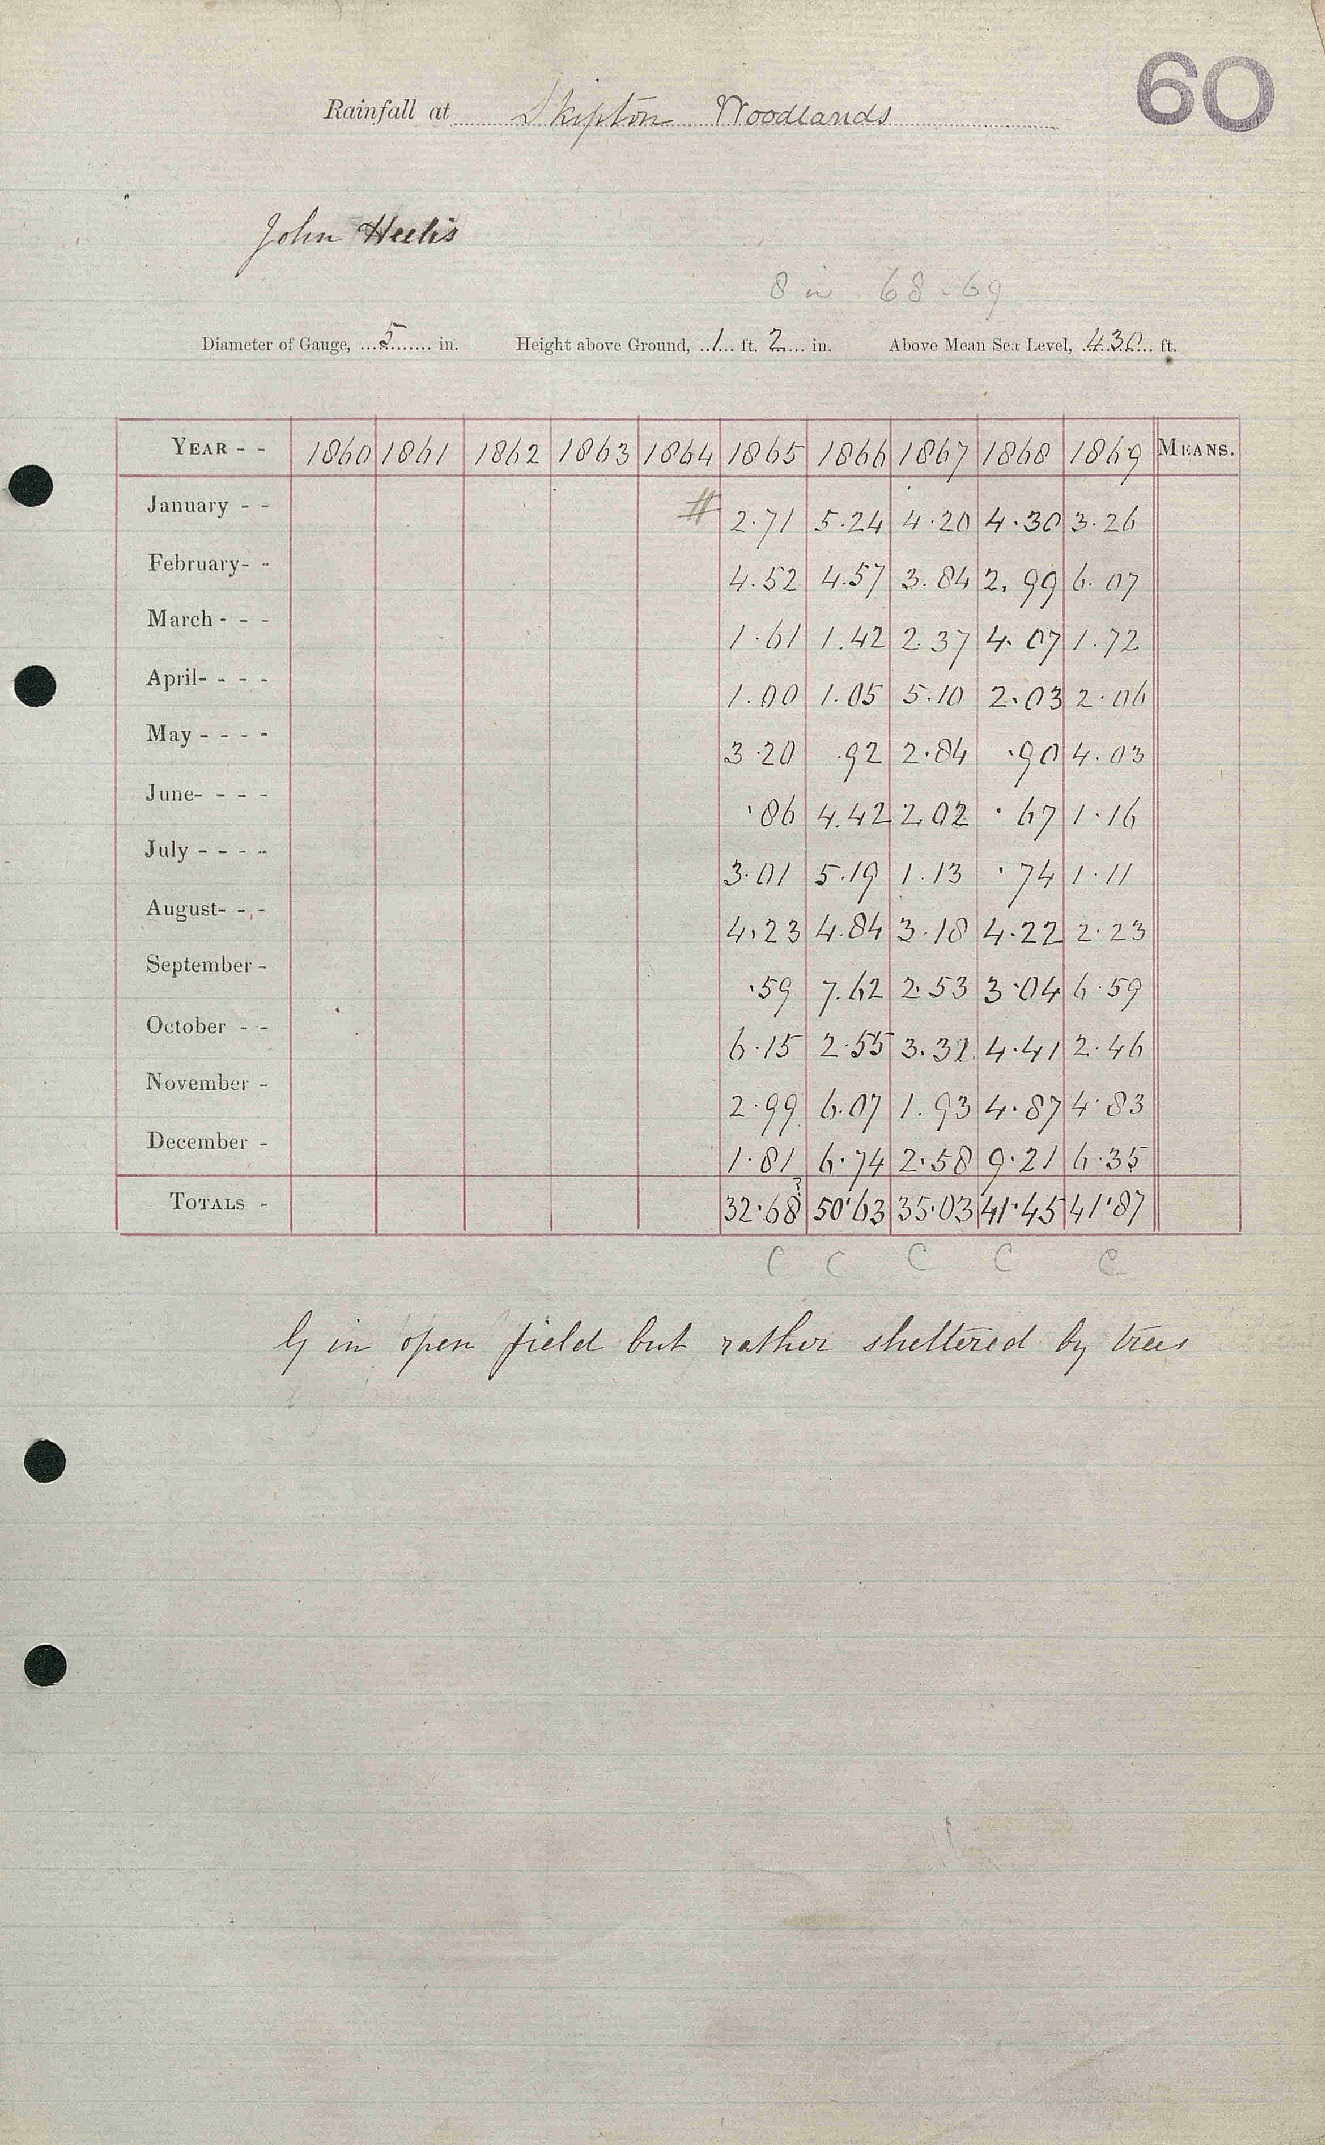 60
Rainfall at Skipton Woodlands
John Heelis
8 in 68-69
Diameter of Gauge, 5 in. Height above Ground, 1 ft. 2 in. Above Mean Sea Level, 430 ft.
YEAR - - 1860 1861 1862 1863 1864 1865 1866 1867 1868 1869 MEANS.
January - - # 2.71 5.24 4.20 4.30 3.26
February- - 4.52 4.57 3.84 2.99 6.07
March - - - 1.61 1.42 2.37 4.07 1.72
April- - - - 1.00 1.05 5.10 2.03 2.06
May - - - - 3.20 .92 2.84 .90 4.03
June- - - - .86 4.42 2.02 .67 1.16
July - - - - 3.01 5.19 1.13 .74 1.11
August- - - 4.23 4.84 3.18 4.22 2.23
September - .59 7.62 2.53 3.04 6.59
October - - 6.15 2.55 3.31 4.41 2.46
November - 2.99 6.07 1.93 4.87 4.83
December - 1.81 6.74 2.58 9.21 6.35
TOTALS - 32.68 ? 50.63 35.03 41.45 41.87
C C C C C
G in open field but rather sheltered by trees